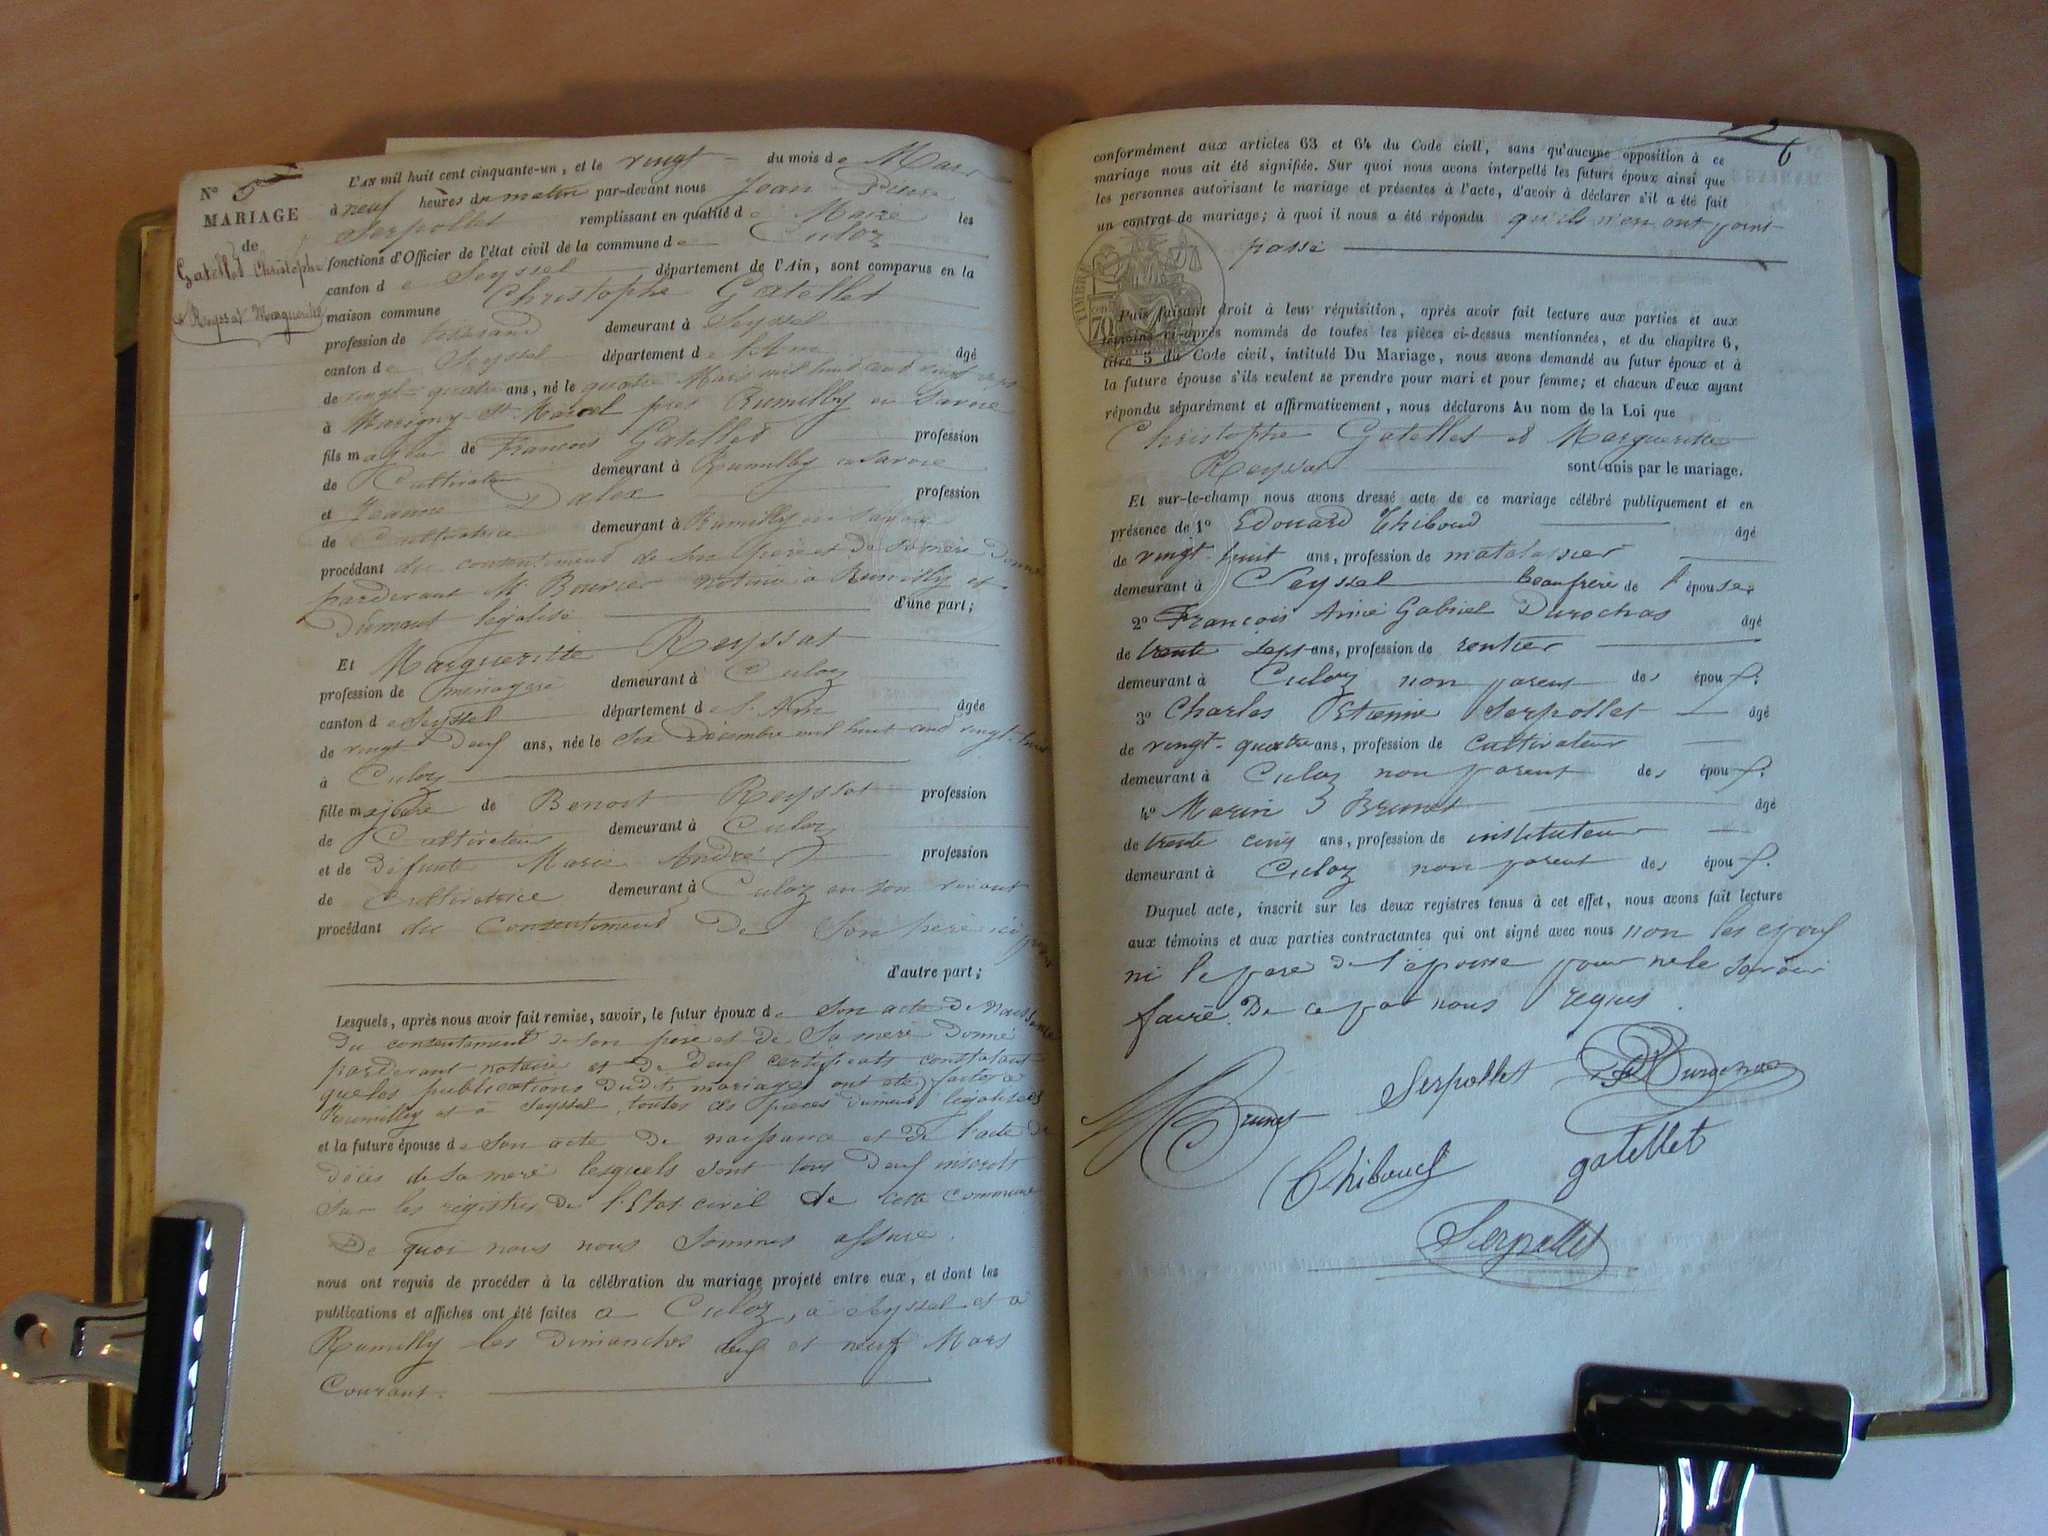 N° 5
MARIAGE
de
Gatellet Christophe
et Reyssat Margueritte
L'AN mil huit cent cinquante-un, et le vingt du mois de Mars
à neuf heures du matin par-devant nous Jean Pierre
Serpollet remplissant en qualité de Maire les
fonctions d'Officier de l'état civil de la commune de Culoz
canton de Seyssel département de l'Ain, sont comparus en la
maison commune Christophe Gatellet
profession de tisserand demeurant à Seyssel
canton de Seyssel département de l'Ain âgé
de vingt-quatre ans, né le quatre Mars mil huit cent vingt sept
à Marigny St. Marcel près Rumilly en Savoie
fils majeur de François Gatellet profession
de Cultivateur demeurant à Rumilly en Savoie
et Jeanne Dalex profession
de Cultivatrice demeurant à Rumilly en Savoie
procédant du consentement de son père et de sa mère donné
pardevant Me Bouvier notaire à Rumilly et
dûment légalisé d'une part;
Et Margueritte Reyssat
profession de ménagère demeurant à Culoz
canton de Seyssel département de l'Ain âgée
de vingt deux ans, née le six Décembre mil huit cent vingt-huit
à Culoz
fille majeure de Benoit Reyssat profession
de Cultivateur demeurant à Culoz
et de défunte Marie André profession
de Cultivatrice demeurant à Culoz en son vivant
procédant du Consentement de son père ici présent
d'autre part;
Lesquels, après nous avoir fait remise, savoir, le futur époux de son acte de naissance
du consentement de son père et de sa mère donné
pardevant notaire et de deux certificats constatant
que les publications dudit mariage ont été faites à
Rumilly et à Seyssel, toutes ces pièces dûment légalisées
et la future épouse de son acte de naissance et de l'acte de
décès de sa mère lesquels sont tous deux inscrits
sur les registres de l'Etat civil de cette commune
De quoi nous nous sommes assuré.
nous ont requis de procéder à la célébration du mariage projeté entre eux, et dont les
publications et affiches ont été faites à Culoz, à Seyssel et à
Rumilly les dimanches deux et neuf Mars
Courant.
6
conformément aux articles 63 et 64 du Code civil, sans qu'aucune opposition à ce
mariage nous ait été signifiée. Sur quoi nous avons interpellé les futurs époux ainsi que
les personnes autorisant le mariage et présentes à l'acte, d'avoir à déclarer s'il a été fait
un contrat de mariage; à quoi il nous a été répondu qu'ils n'en ont point
passé
TIMBRE
70
Puis faisant droit à leur réquisition, après avoir fait lecture aux parties et aux
témoins ci-après nommés de toutes les pièces ci-dessus mentionnées, et du chapitre 6,
titre 5 du Code civil, intitulé Du Mariage, nous avons demandé au futur époux et à
la future épouse s'ils veulent se prendre pour mari et pour femme; et chacun d'eux ayant
répondu séparément et affirmativement, nous déclarons Au nom de la Loi que
Christophe Gatellet et Margueritte
Reyssat sont unis par le mariage.
Et sur-le-champ nous avons dressé acte de ce mariage célébré publiquement et en
présence de 1° Edouard Thiboud âgé
de vingt-huit ans, profession de matelassier
demeurant à Seyssel beaufrère de l'épouse
2° François Aimé Gabriel Durochas âgé
de trente sept ans, profession de rentier
demeurant à Culoz non parent des époux.
3° Charles Etienne Serpollet âgé
de vingt-quatre ans, profession de cultivateur
demeurant à Culoz non parent des époux.
4° Marin Brunet âgé
de trente cinq ans, profession de instituteur
demeurant à Culoz non parent des époux.
Duquel acte, inscrit sur les deux registres tenus à cet effet, nous avons fait lecture
aux témoins et aux parties contractantes qui ont signé avec nous non les époux
ni le père de l'épouse pour ne le savoir
faire. De ce par nous requis.
Serpollet
M Brunet
Thiboud gatellet
Serpollet